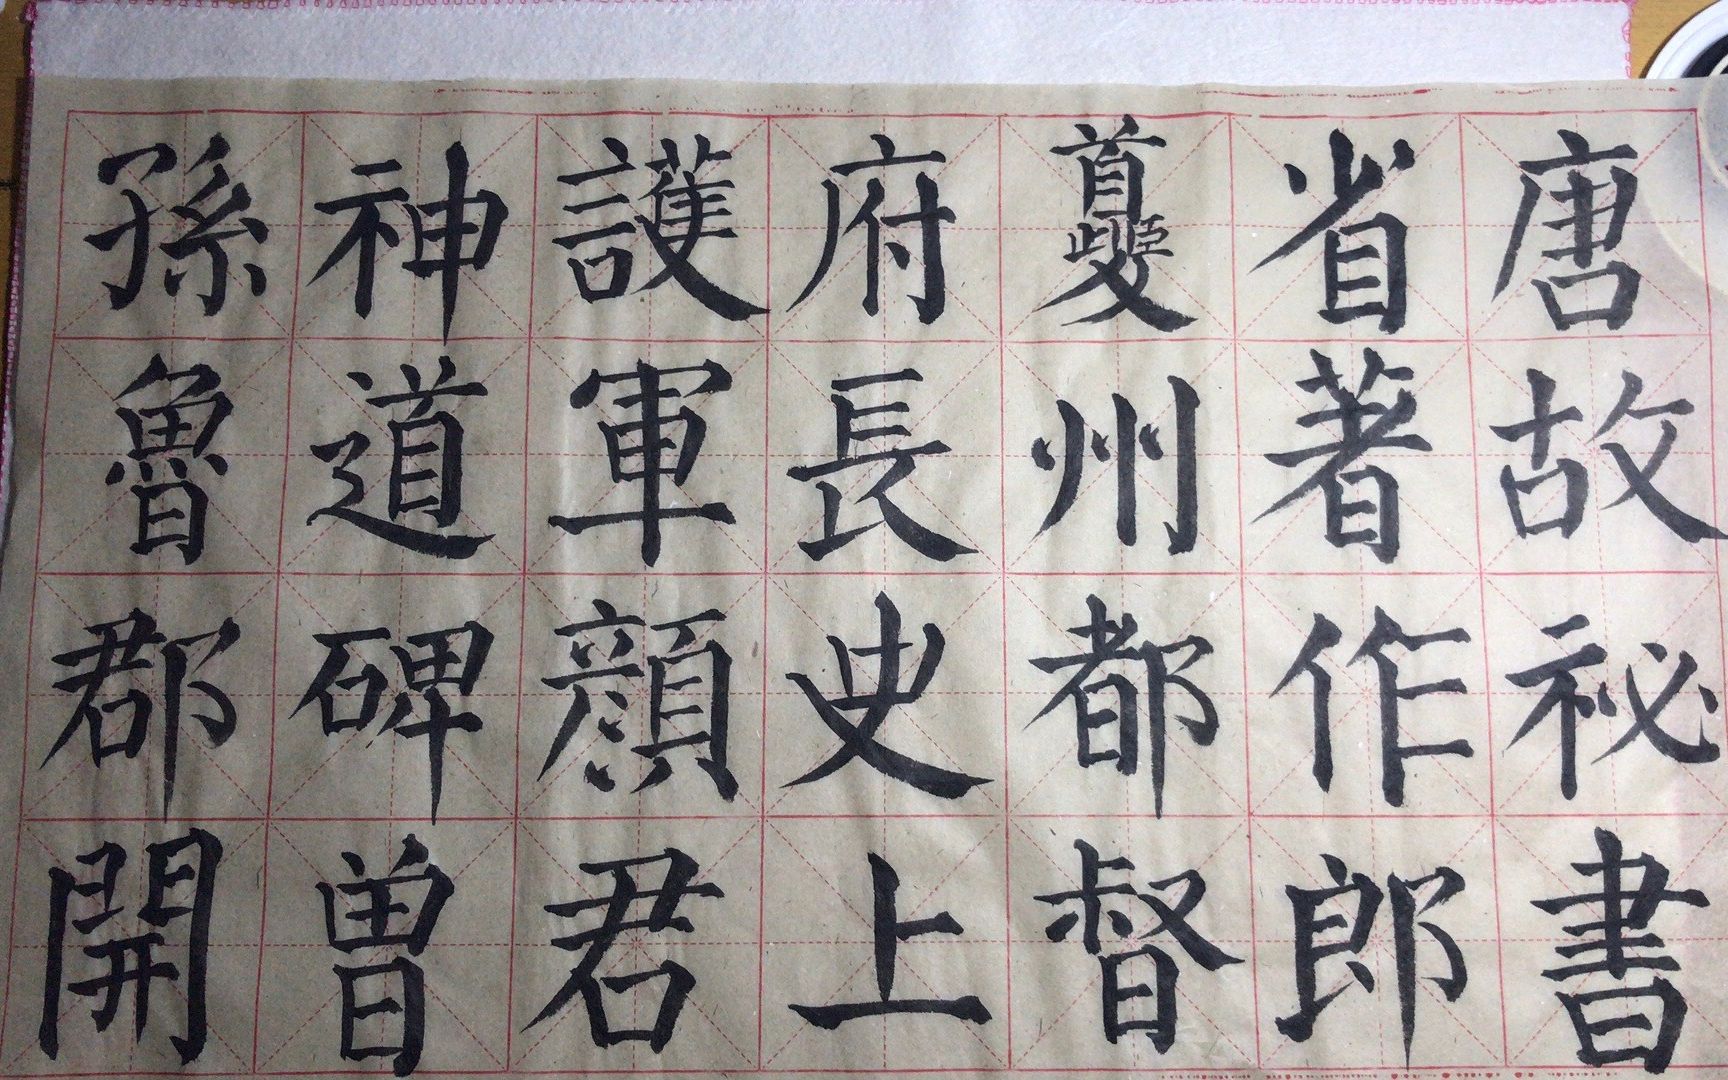 唐故祕書
省著作郎
夔州都督
府長史上
護軍顏君
神道碑曾
孫魯郡開